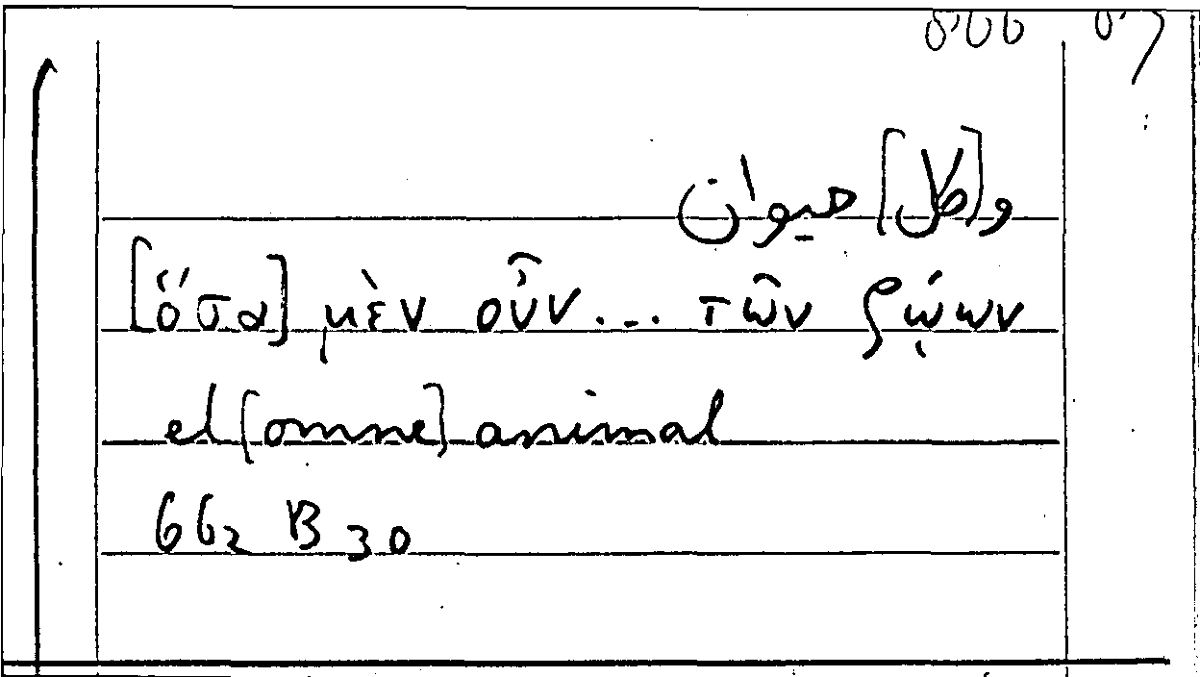 و[كل] حيوان
[ὅσα] μὲν οὖν... τῶν ζῴων
et [omne] animal
662 B 30